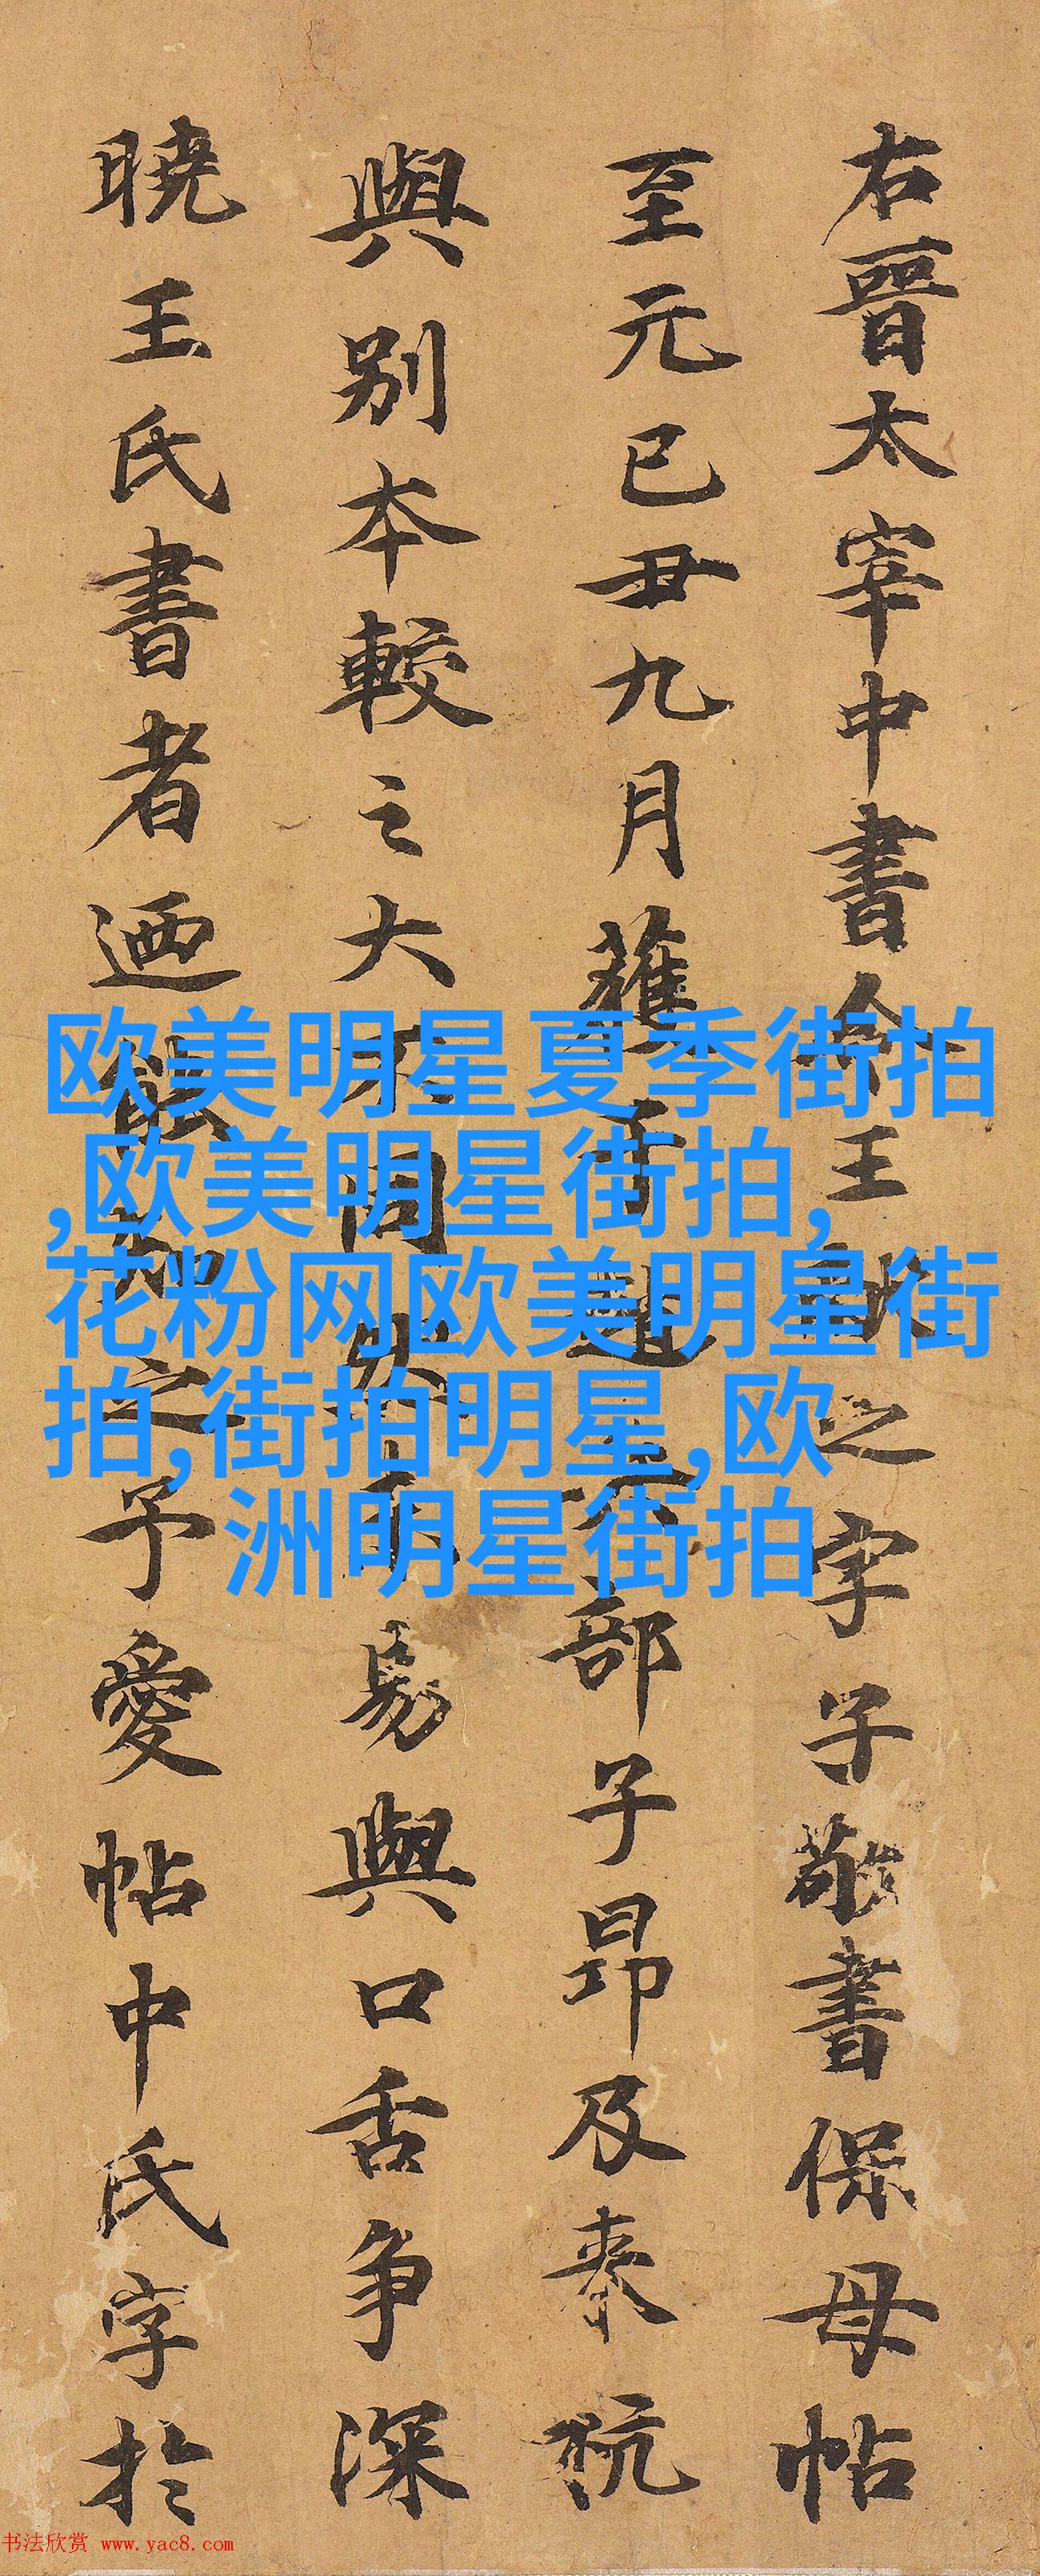 右晉太宰中書令王之字子敬書保母帖
至元已丑九月部子昂及來杭
與別本較之大不同易與口舌争深
曉王氏書者迺能知之予愛帖中氏字於
欧美明星夏季街拍
,欧美明星街拍,
花粉网欧美明星街
拍,街拍明星,欧
洲明星街拍
书法欣赏 www.yac8.com